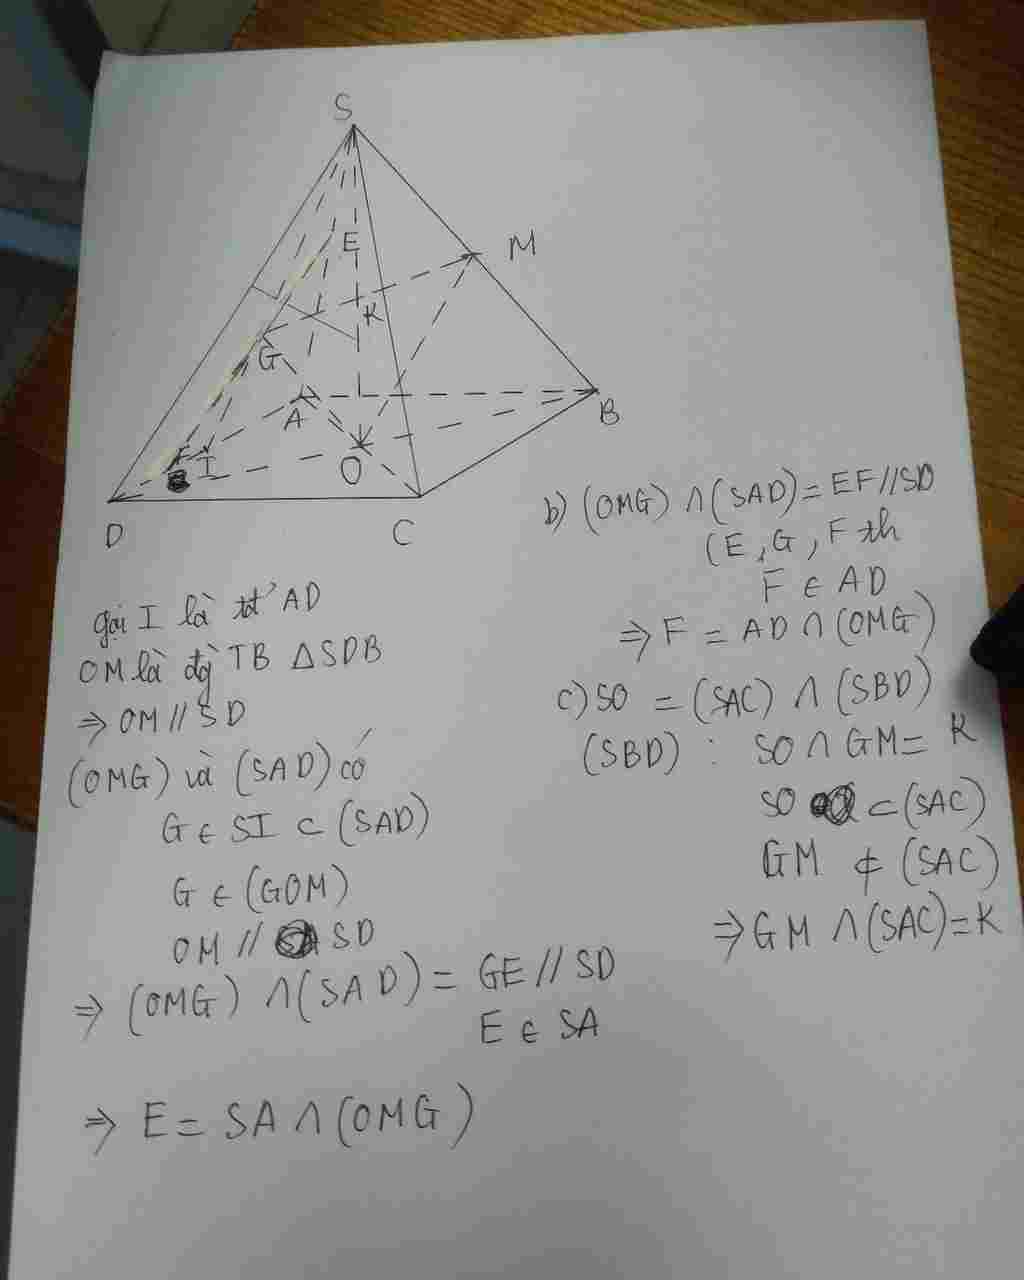 S
E
M
K
G
A
B
F I
O
D
C
gọi I là tđ AD
OM là đg TB ΔSDB
⇒ OM // SD
(OMG) và (SAD) có
G ∈ SI ⊂ (SAD)
G ∈ (GOM)
OM // SD
⇒ (OMG) ∩ (SAD) = GE // SD
E ∈ SA
⇒ E = SA ∩ (OMG)
b) (OMG) ∩ (SAD) = EF // SD
(E, G, F th
F ∈ AD
⇒ F = AD ∩ (OMG)
c) SO = (SAC) ∩ (SBD)
(SBD) : SO ∩ GM = K
SO ⊂ (SAC)
GM ⊄ (SAC)
⇒ GM ∩ (SAC) = K